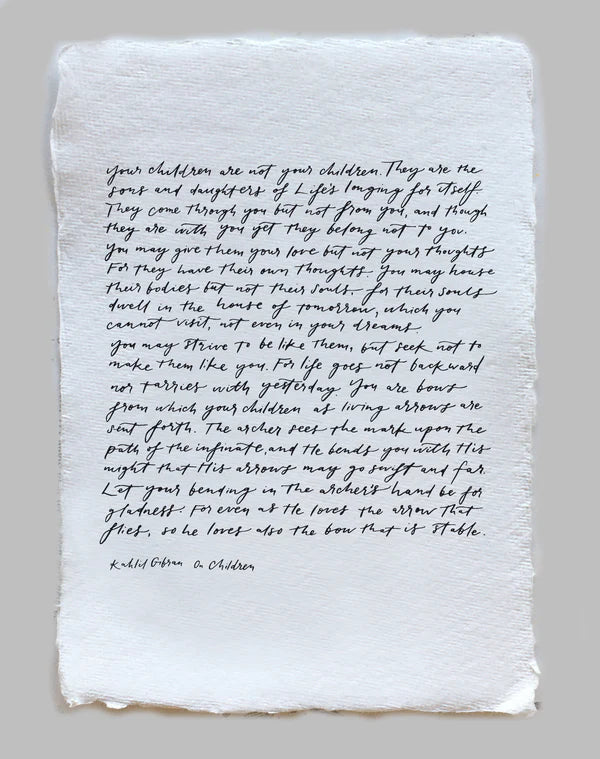 your children are not your children. They are the
sons and daughters of Life's longing for itself
They come through you but not from you, and though
they are with you yet they belong not to you.
You may give them your love but not your thoughts
For they have their own thoughts. You may house
their bodies but not their souls, for their souls
dwell in the house of tomorrow, which you
cannot visit, not even in your dreams.
you may strive to be like them, but seek not to
make them like you. For life goes not backward
nor tarries with yesterday. You are bows
from which your children as living arrows are
sent forth. The archer sees the mark upon the
path of the infinate, and He bends you with His
might that His arrows may go swift and far.
Let your bending in the archer's hand be for
gladness. For even as He loves the arrow that
flies, so he loves also the bow that is stable.
Kahlil Gibran On Children